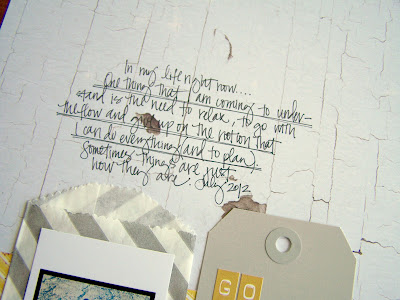 In my life right now...
One thing that I am coming to under-
stand is the need to relax, to go with
the flow and give up on the notion that
I can do everything (and to plan).
Sometimes things are just
how they are. July 2012
GO